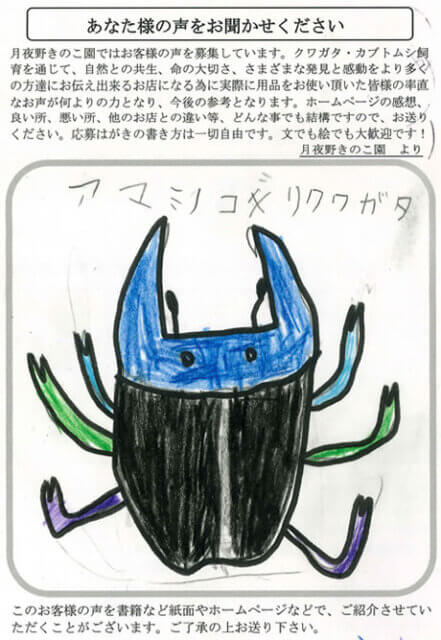 あなた様の声をお聞かせください
月夜野きのこ園ではお客様の声を募集しています。クワガタ・カブトムシ飼
育を通じて、自然との共生、命の大切さ、さまざまな発見と感動をより多く
の方達にお伝え出来るお店になる為に実際に用品をお使い頂いた皆様の率直
なお声が何よりの力となり、今後の参考となります。ホームページの感想、
良い所、悪い所、他のお店との違い等、どんな事でも結構ですので、お送り
ください。応募はがきの書き方は一切自由です。文でも絵でも大歓迎です！
月夜野きのこ園　より
アマミノコギリクワガタ
このお客様の声を書籍など紙面やホームページなどで、ご紹介させてい
ただくことがございます。ご了承の上お送り下さい。